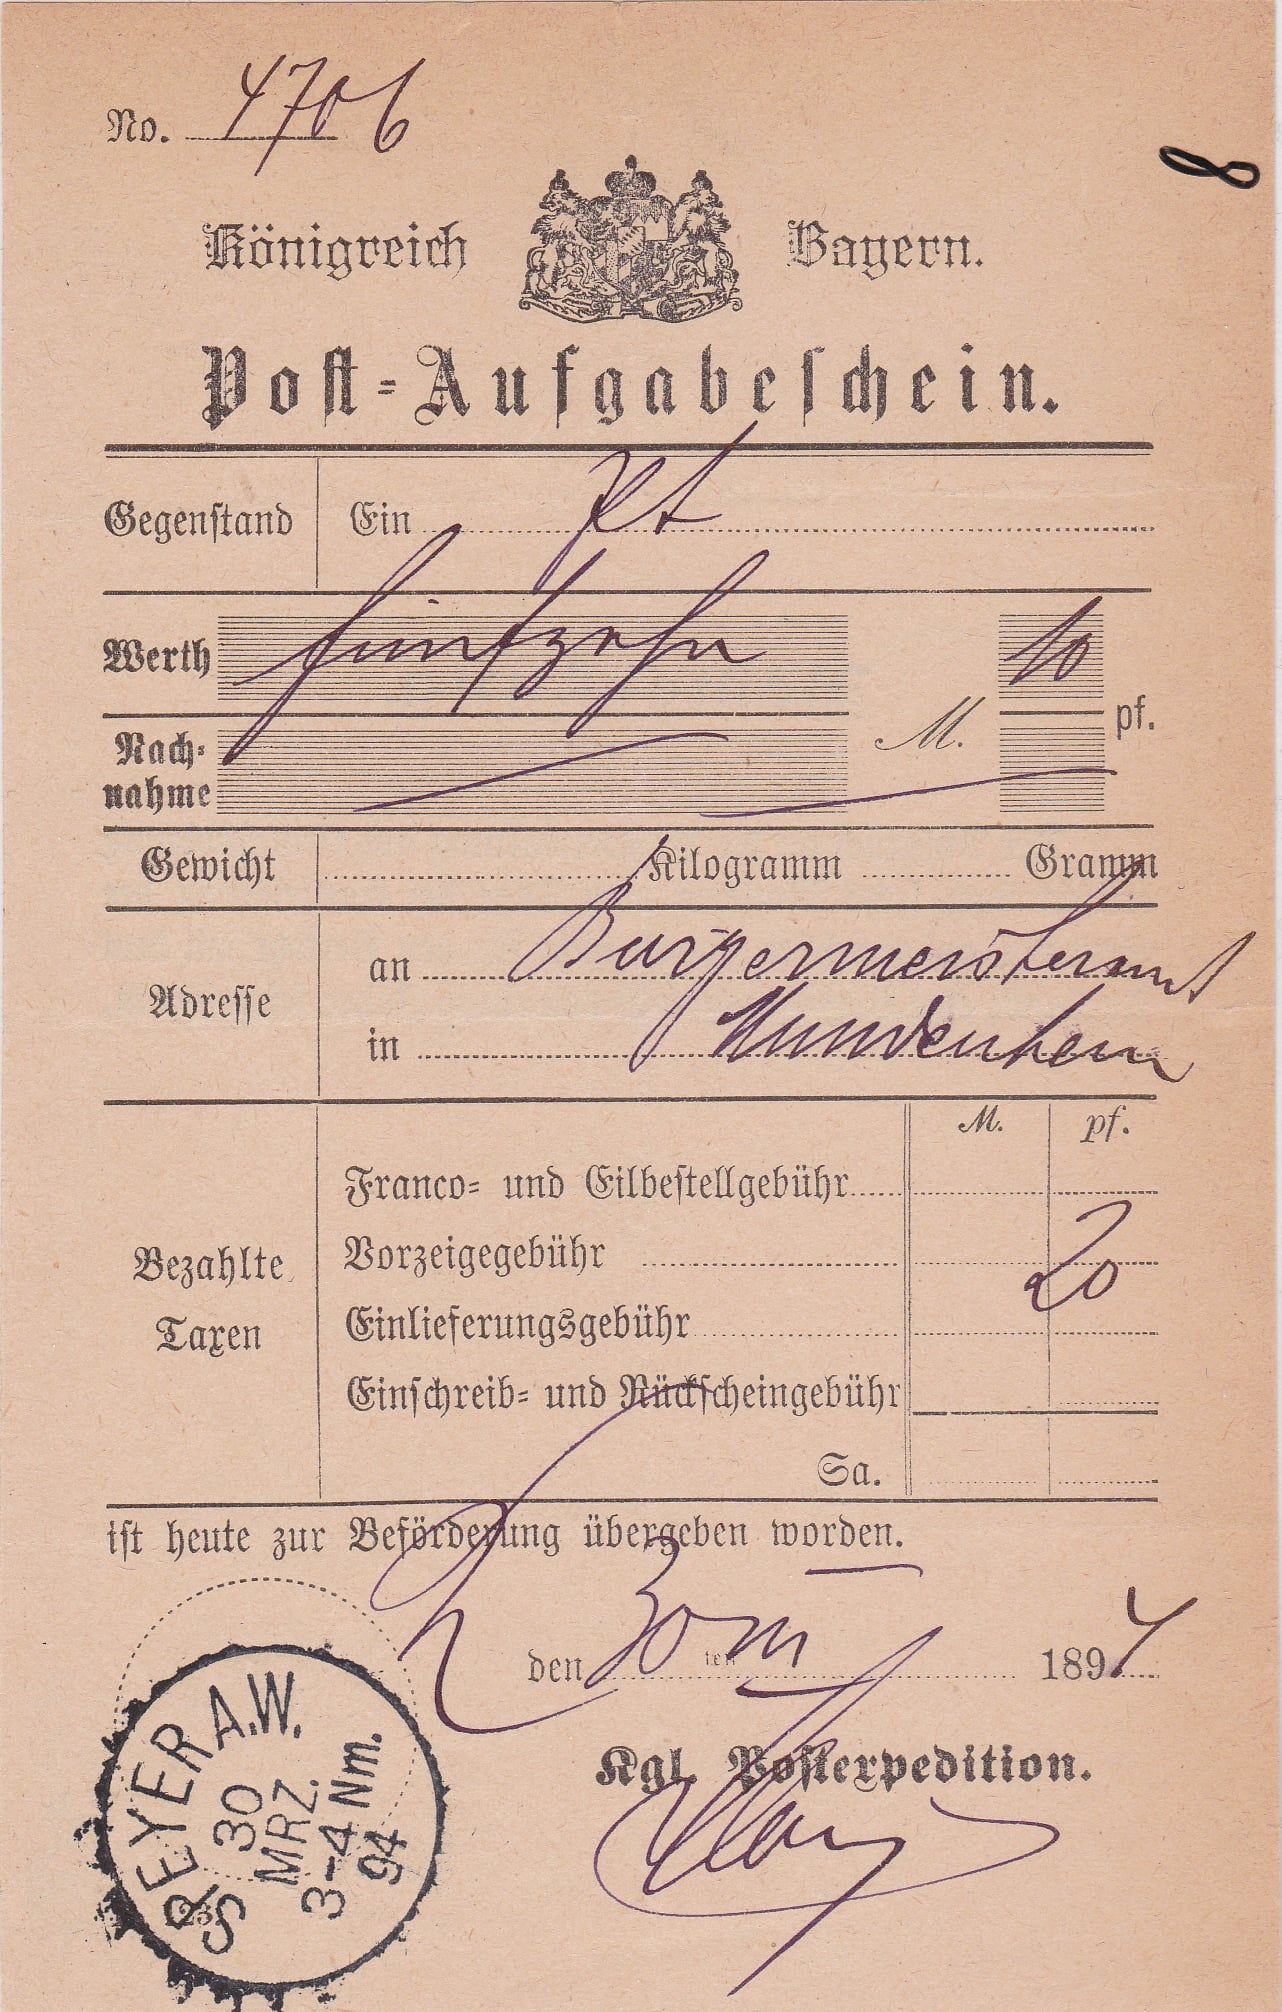 No. 4706
Königreich Bayern.
Post-Aufgabeschein.
Gegenstand Ein Pt
Werth fünfzehn M. 10 pf.
Nach-
nahme
Gewicht Kilogramm Gramm
Adresse an Bürgermeisteramt
in Mundenheim
M. pf.
Franco- und Eilbestellgebühr
Bezahlte Vorzeigegebühr 20
Taxen Einlieferungsgebühr
Einschreib- und Rückscheingebühr
Sa.
ist heute zur Beförderung übergeben worden.
den 30 ten III 1894
Kgl. Postexpedition.
SPEYER A.W.
30
MRZ.
3-4 Nm.
94